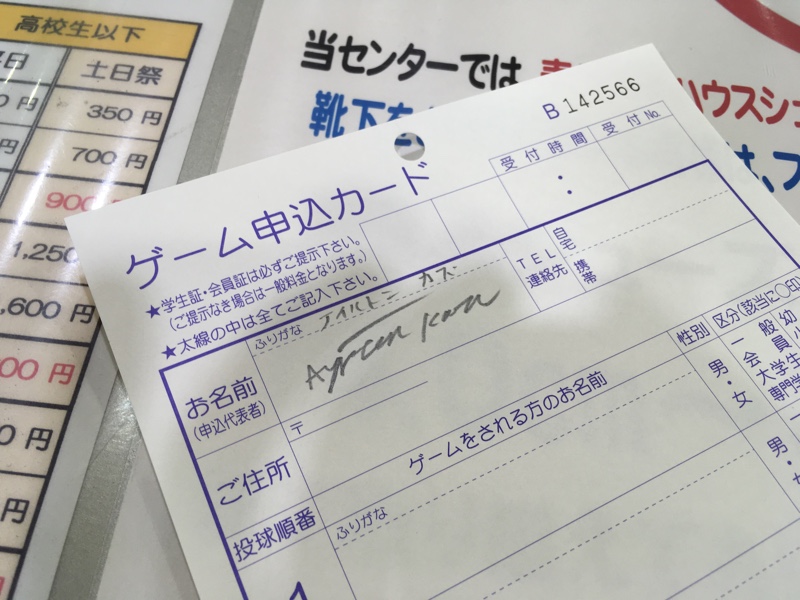 高校生以下
日
土日祭
0 円
350 円
円
700 円
900
1,250
,600 円
00 円
0 円
円
当センターでは
ハウスシュ
靴下を
は、フ
B 142566
ゲーム申込カード
受付時間
受付No.
:
★学生証・会員証は必ずご提示下さい。
(ご提示なき場合は一般料金となります。)
★太線の中は全てご記入下さい。
TEL
連絡先
自宅
携帯
ふりがな アイルトン カズ
お名前
(申込代表者)
性別
区分(該当に○印
男・女
一般
会員
大学生
専門学
幼
ご住所
〒
ゲームをされる方のお名前
投球順番
ふりがな
男・女
1